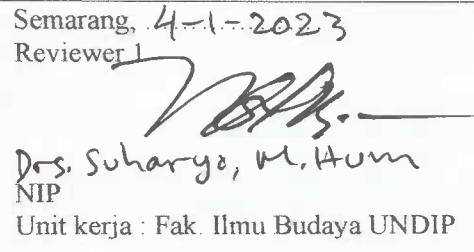 Semarang, 4-1-2023
Reviewer 1
Drs. Suharyo, M.Hum
NIP
Unit kerja : Fak. Ilmu Budaya UNDIP